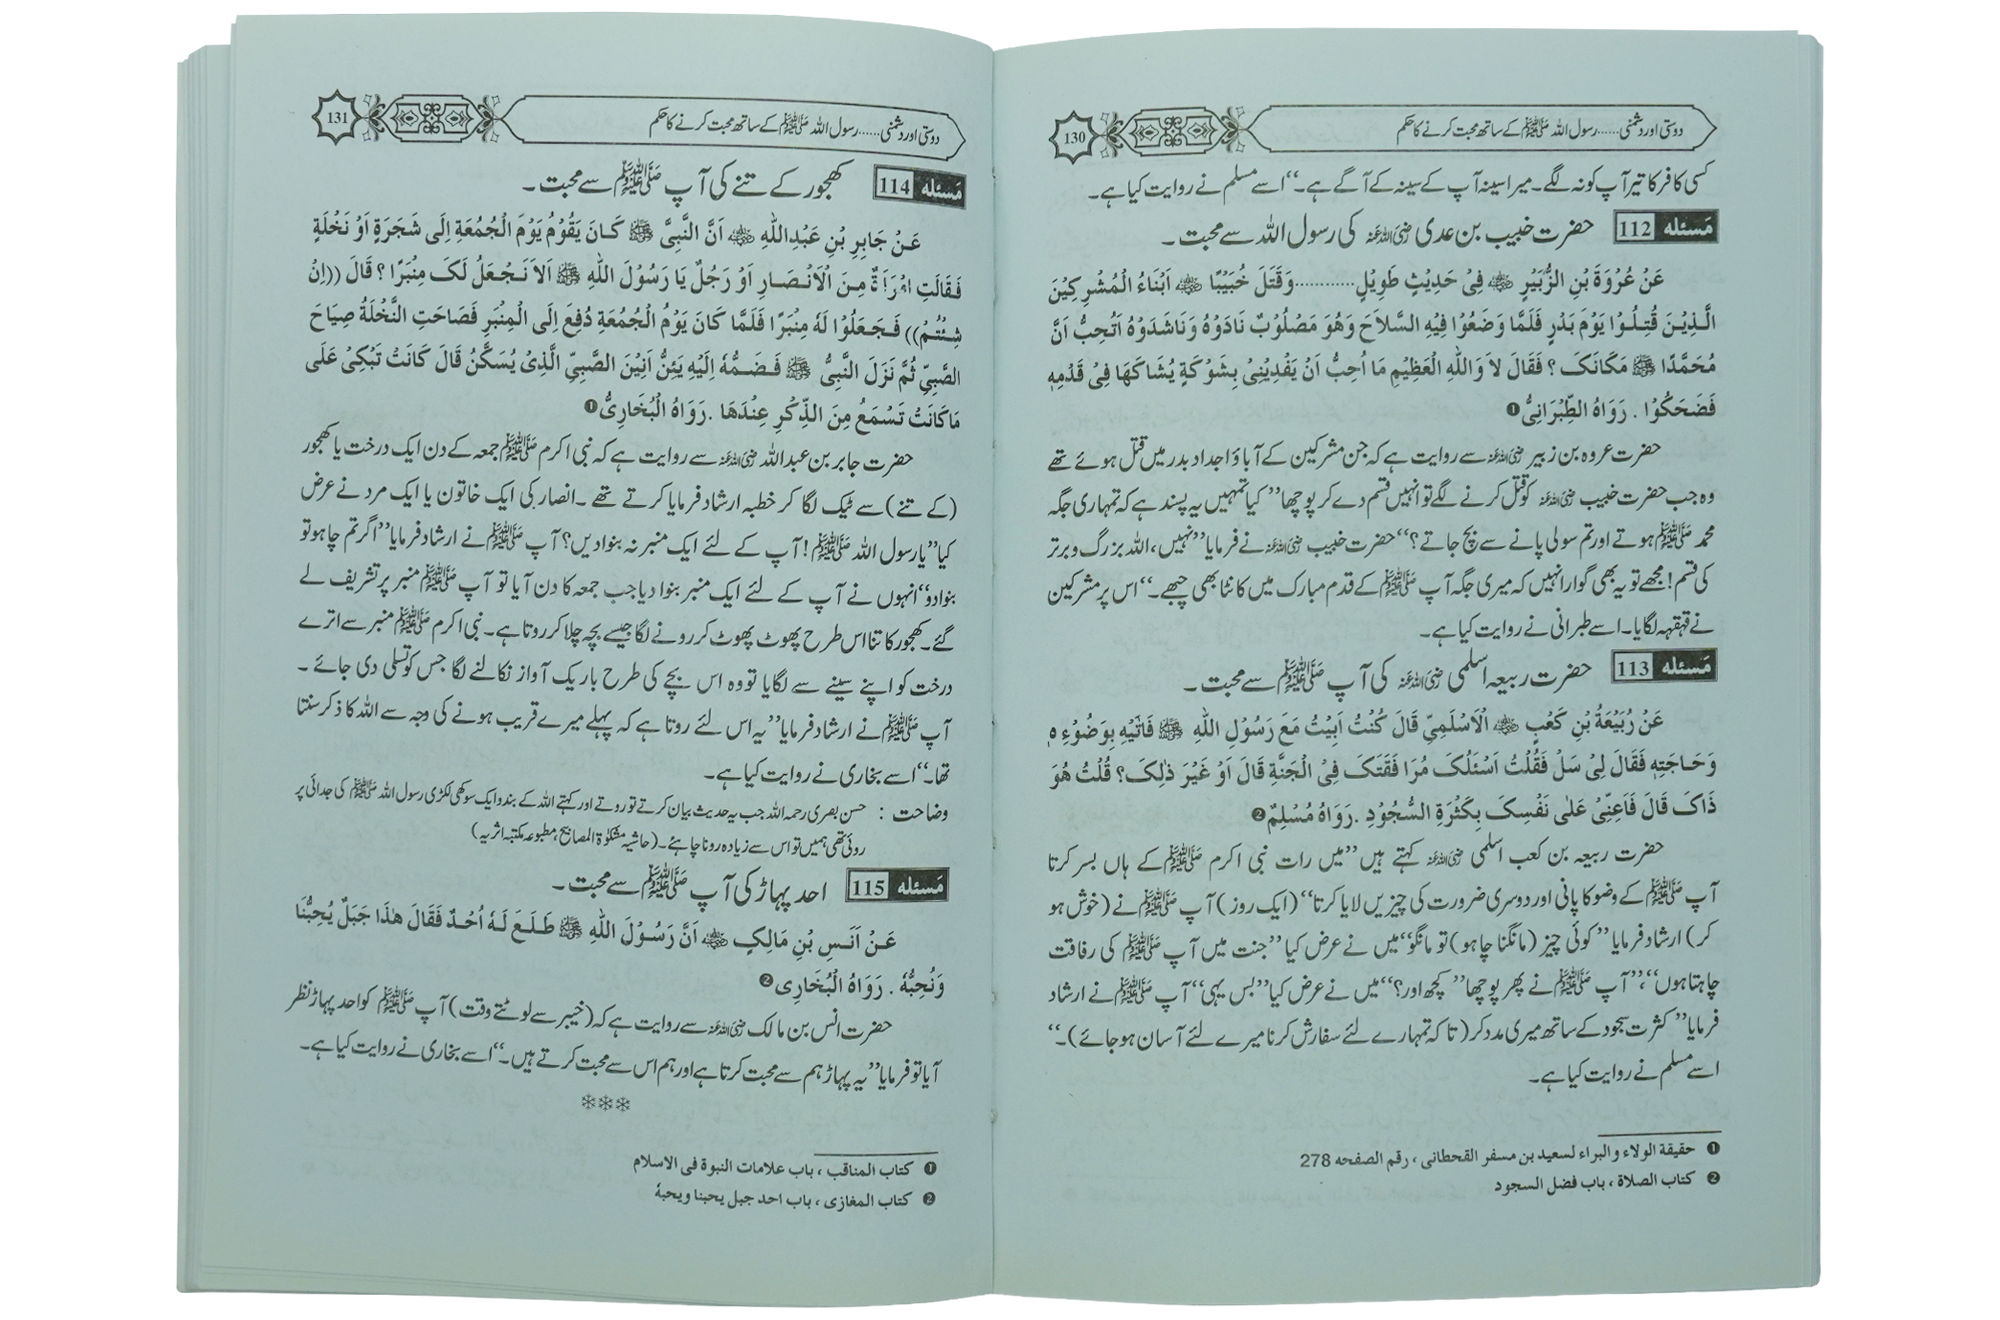 دوستی اور دشمنی......رسول اللہ ﷺ کے ساتھ محبت کرنے کا حکم
130
کسی کافر کا تیر آپ کو نہ لگے۔ میرا سینہ آپ کے سینہ کے آگے ہے۔‘‘ اسے مسلم نے روایت کیا ہے۔
مَسئله 112 حضرت خبیب بن عدی رضی اللہ عنہ کی رسول اللہ سے محبت۔
عَنْ عُرْوَةَ بْنِ الزُّبَيْرِ ﷛ فِىْ حَدِيْثٍ طَوِيْلٍ............وَقَتَلَ خُبَيْبًا ﷛ اَبْنَاءُ الْمُشْرِكِيْنَ
الَّذِيْنَ قُتِلُوْا يَوْمَ بَدْرٍ فَلَمَّا وَضَعُوْا فِيْهِ السَّلاَحَ وَهُوَ مَصْلُوْبٌ نَادَوْهُ وَنَاشَدَوْهُ اَتُحِبُّ اَنَّ
مُحَمَّدًا ﷺ مَكَانَكَ ؟ فَقَالَ لاَ وَاللّٰهِ الْعَظِيْمِ مَا اُحِبُّ اَنْ يَفْدِيَنِىْ بِشَوْكَةٍ يُشَاكَهَا فِىْ قَدَمِهٖ
فَضَحَكُوْا . رَوَاهُ الطِّبْرَانِىُّ ❶
حضرت عروہ بن زبیر رضی اللہ عنہ سے روایت ہے کہ جن مشرکین کے آباؤ اجداد بدر میں قتل ہوئے تھے
وہ جب حضرت خبیب رضی اللہ عنہ کو قتل کرنے لگے تو انہیں قسم دے کر پوچھا ’’کیا تمہیں یہ پسند ہے کہ تمہاری جگہ
محمد ﷺ ہوتے اور تم سولی پانے سے بچ جاتے؟‘‘ حضرت خبیب رضی اللہ عنہ نے فرمایا ’’نہیں، اللہ بزرگ و برتر
کی قسم! مجھے تو یہ بھی گوارا نہیں کہ میری جگہ آپ ﷺ کے قدم مبارک میں کانٹا بھی چبھے۔‘‘ اس پر مشرکین
نے قہقہہ لگایا۔ اسے طبرانی نے روایت کیا ہے۔
مَسئله 113 حضرت ربیعہ اسلمی رضی اللہ عنہ کی آپ ﷺ سے محبت۔
عَنْ رُبَيْعَةُ بْنِ كَعْبٍ ﷛ الْاَسْلَمِىِّ قَالَ كُنْتُ اَبِيْتُ مَعَ رَسُوْلِ اللّٰهِ ﷺ فَاَتَيْهِ بِوَضُوْءِ هٖ
وَحَاجَتِهٖ فَقَالَ لِىْ سَلْ فَقُلْتُ اَسْئَلُكَ مُرَا فَقَتَكَ فِى الْجَنَّةِ قَالَ اَوْ غَيْرَ ذٰلِكَ؟ قُلْتُ هُوَ
ذَاكَ قَالَ فَاَعِنِّىْ عَلٰى نَفْسِكَ بِكَثْرَةِ السُّجُوْدِ .رَوَاهُ مُسْلِمٌ ❷
حضرت ربیعہ بن کعب اسلمی رضی اللہ عنہ کہتے ہیں ’’میں رات نبی اکرم ﷺ کے ہاں بسر کرتا
آپ ﷺ کے وضو کا پانی اور دوسری ضرورت کی چیزیں لایا کرتا‘‘ (ایک روز) آپ ﷺ نے (خوش ہو
کر) ارشاد فرمایا ’’کوئی چیز (مانگنا چاہو) تو مانگو‘‘ میں نے عرض کیا ’’جنت میں آپ ﷺ کی رفاقت
چاہتا ہوں‘‘، آپ ﷺ نے پھر پوچھا ’’کچھ اور؟‘‘ میں نے عرض کیا ’’بس یہی‘‘ آپ ﷺ نے ارشاد
فرمایا ’’کثرت سجود کے ساتھ میری مدد کر (تاکہ تمہارے لئے سفارش کرنا میرے لئے آسان ہو جائے)۔‘‘
اسے مسلم نے روایت کیا ہے۔
❶ حقيقة الولاء والبراء لسعيد بن مسفر القحطانى ، رقم الصفحه 278
❷ كتاب الصلاة ، باب فضل السجود
دوستی اور دشمنی......رسول اللہ ﷺ کے ساتھ محبت کرنے کا حکم
131
مَسئله 114 کھجور کے تنے کی آپ ﷺ سے محبت۔
عَنْ جَابِرِ بْنِ عَبْدِاللّٰهِ ﷛ اَنَّ النَّبِىَّ ﷺ كَانَ يَقُوْمُ يَوْمَ الْجُمُعَةِ اِلَى شَجَرَةٍ اَوْ نَخْلَةٍ
فَقَالَتِ امْرَاَةٌ مِنَ الْاَنْصَارِ اَوْ رَجُلٌ يَا رَسُوْلَ اللّٰهِ ﷺ اَلاَ نَجْعَلُ لَكَ مِنْبَرًا ؟ قَالَ ((اِنْ
شِئْتُمْ)) فَجَعَلُوْا لَهٗ مِنْبَرًا فَلَمَّا كَانَ يَوْمُ الْجُمُعَةِ دُفِعَ اِلَى الْمِنْبَرِ فَصَاحَتِ النَّخْلَةُ صِيَاحَ
الصَّبِىِّ ثُمَّ نَزَلَ النَّبِىُّ ﷺ فَضَمُّهٗ اِلَيْهِ يَئِنُّ اَنِيْنَ الصَّبِىِّ الَّذِىْ يُسَكَّنُ قَالَ كَانَتْ تَبْكِىْ عَلَى
مَاكَانَتْ تَسْمَعُ مِنَ الذِّكْرِ عِنْدَهَا .رَوَاهُ الْبُخَارِىُّ ❶
حضرت جابر بن عبد اللہ رضی اللہ عنہ سے روایت ہے کہ نبی اکرم ﷺ جمعہ کے دن ایک درخت یا کھجور
(کے تنے) سے ٹیک لگا کر خطبہ ارشاد فرمایا کرتے تھے۔ انصار کی ایک خاتون یا ایک مرد نے عرض
کیا ’’یا رسول اللہ ﷺ! آپ کے لئے ایک منبر نہ بنوا دیں؟ آپ ﷺ نے ارشاد فرمایا ’’اگر تم چاہو تو
بنوا دو‘‘ انہوں نے آپ کے لئے ایک منبر بنوا دیا جب جمعہ کا دن آیا تو آپ ﷺ منبر پر تشریف لے
گئے۔ کھجور کا تنا اس طرح پھوٹ پھوٹ کر رونے لگا جیسے بچہ چلا کر روتا ہے۔ نبی اکرم ﷺ منبر سے اترے
درخت کو اپنے سینے سے لگایا تو وہ اس بچے کی طرح باریک آواز نکالنے لگا جس کو تسلی دی جائے۔
آپ ﷺ نے ارشاد فرمایا ’’یہ اس لئے روتا ہے کہ پہلے میرے قریب ہونے کی وجہ سے اللہ کا ذکر سنتا
تھا۔‘‘ اسے بخاری نے روایت کیا ہے۔
وضاحت : حسن بصری رحمہ اللہ جب یہ حدیث بیان کرتے تو روتے اور کہتے اللہ کے بندو ایک سوکھی لکڑی رسول اللہ ﷺ کی جدائی پر
روئی تھی ہمیں تو اس سے زیادہ رونا چاہئے۔ (حاشیہ مشکوٰۃ المصابیح، مطبوعہ مکتبہ اثریہ)
مَسئله 115 احد پہاڑ کی آپ ﷺ سے محبت۔
عَنْ اَنَسِ بْنِ مَالِكٍ ﷛ اَنَّ رَسُوْلَ اللّٰهِ ﷺ طَلَعَ لَهٗ اُحُدٌ فَقَالَ هٰذَا جَبَلٌ يُحِبُّنَا
وَنُحِبُّهٗ . رَوَاهُ الْبُخَارِى ❷
حضرت انس بن مالک رضی اللہ عنہ سے روایت ہے کہ (خیبر سے لوٹتے وقت) آپ ﷺ کو احد پہاڑ نظر
آیا تو فرمایا ’’یہ پہاڑ ہم سے محبت کرتا ہے اور ہم اس سے محبت کرتے ہیں۔‘‘ اسے بخاری نے روایت کیا ہے۔
❄❄❄
❶ كتاب المناقب ، باب علامات النبوة فى الاسلام
❷ كتاب المغازى ، باب احد جبل يحبنا ويحبهٗ